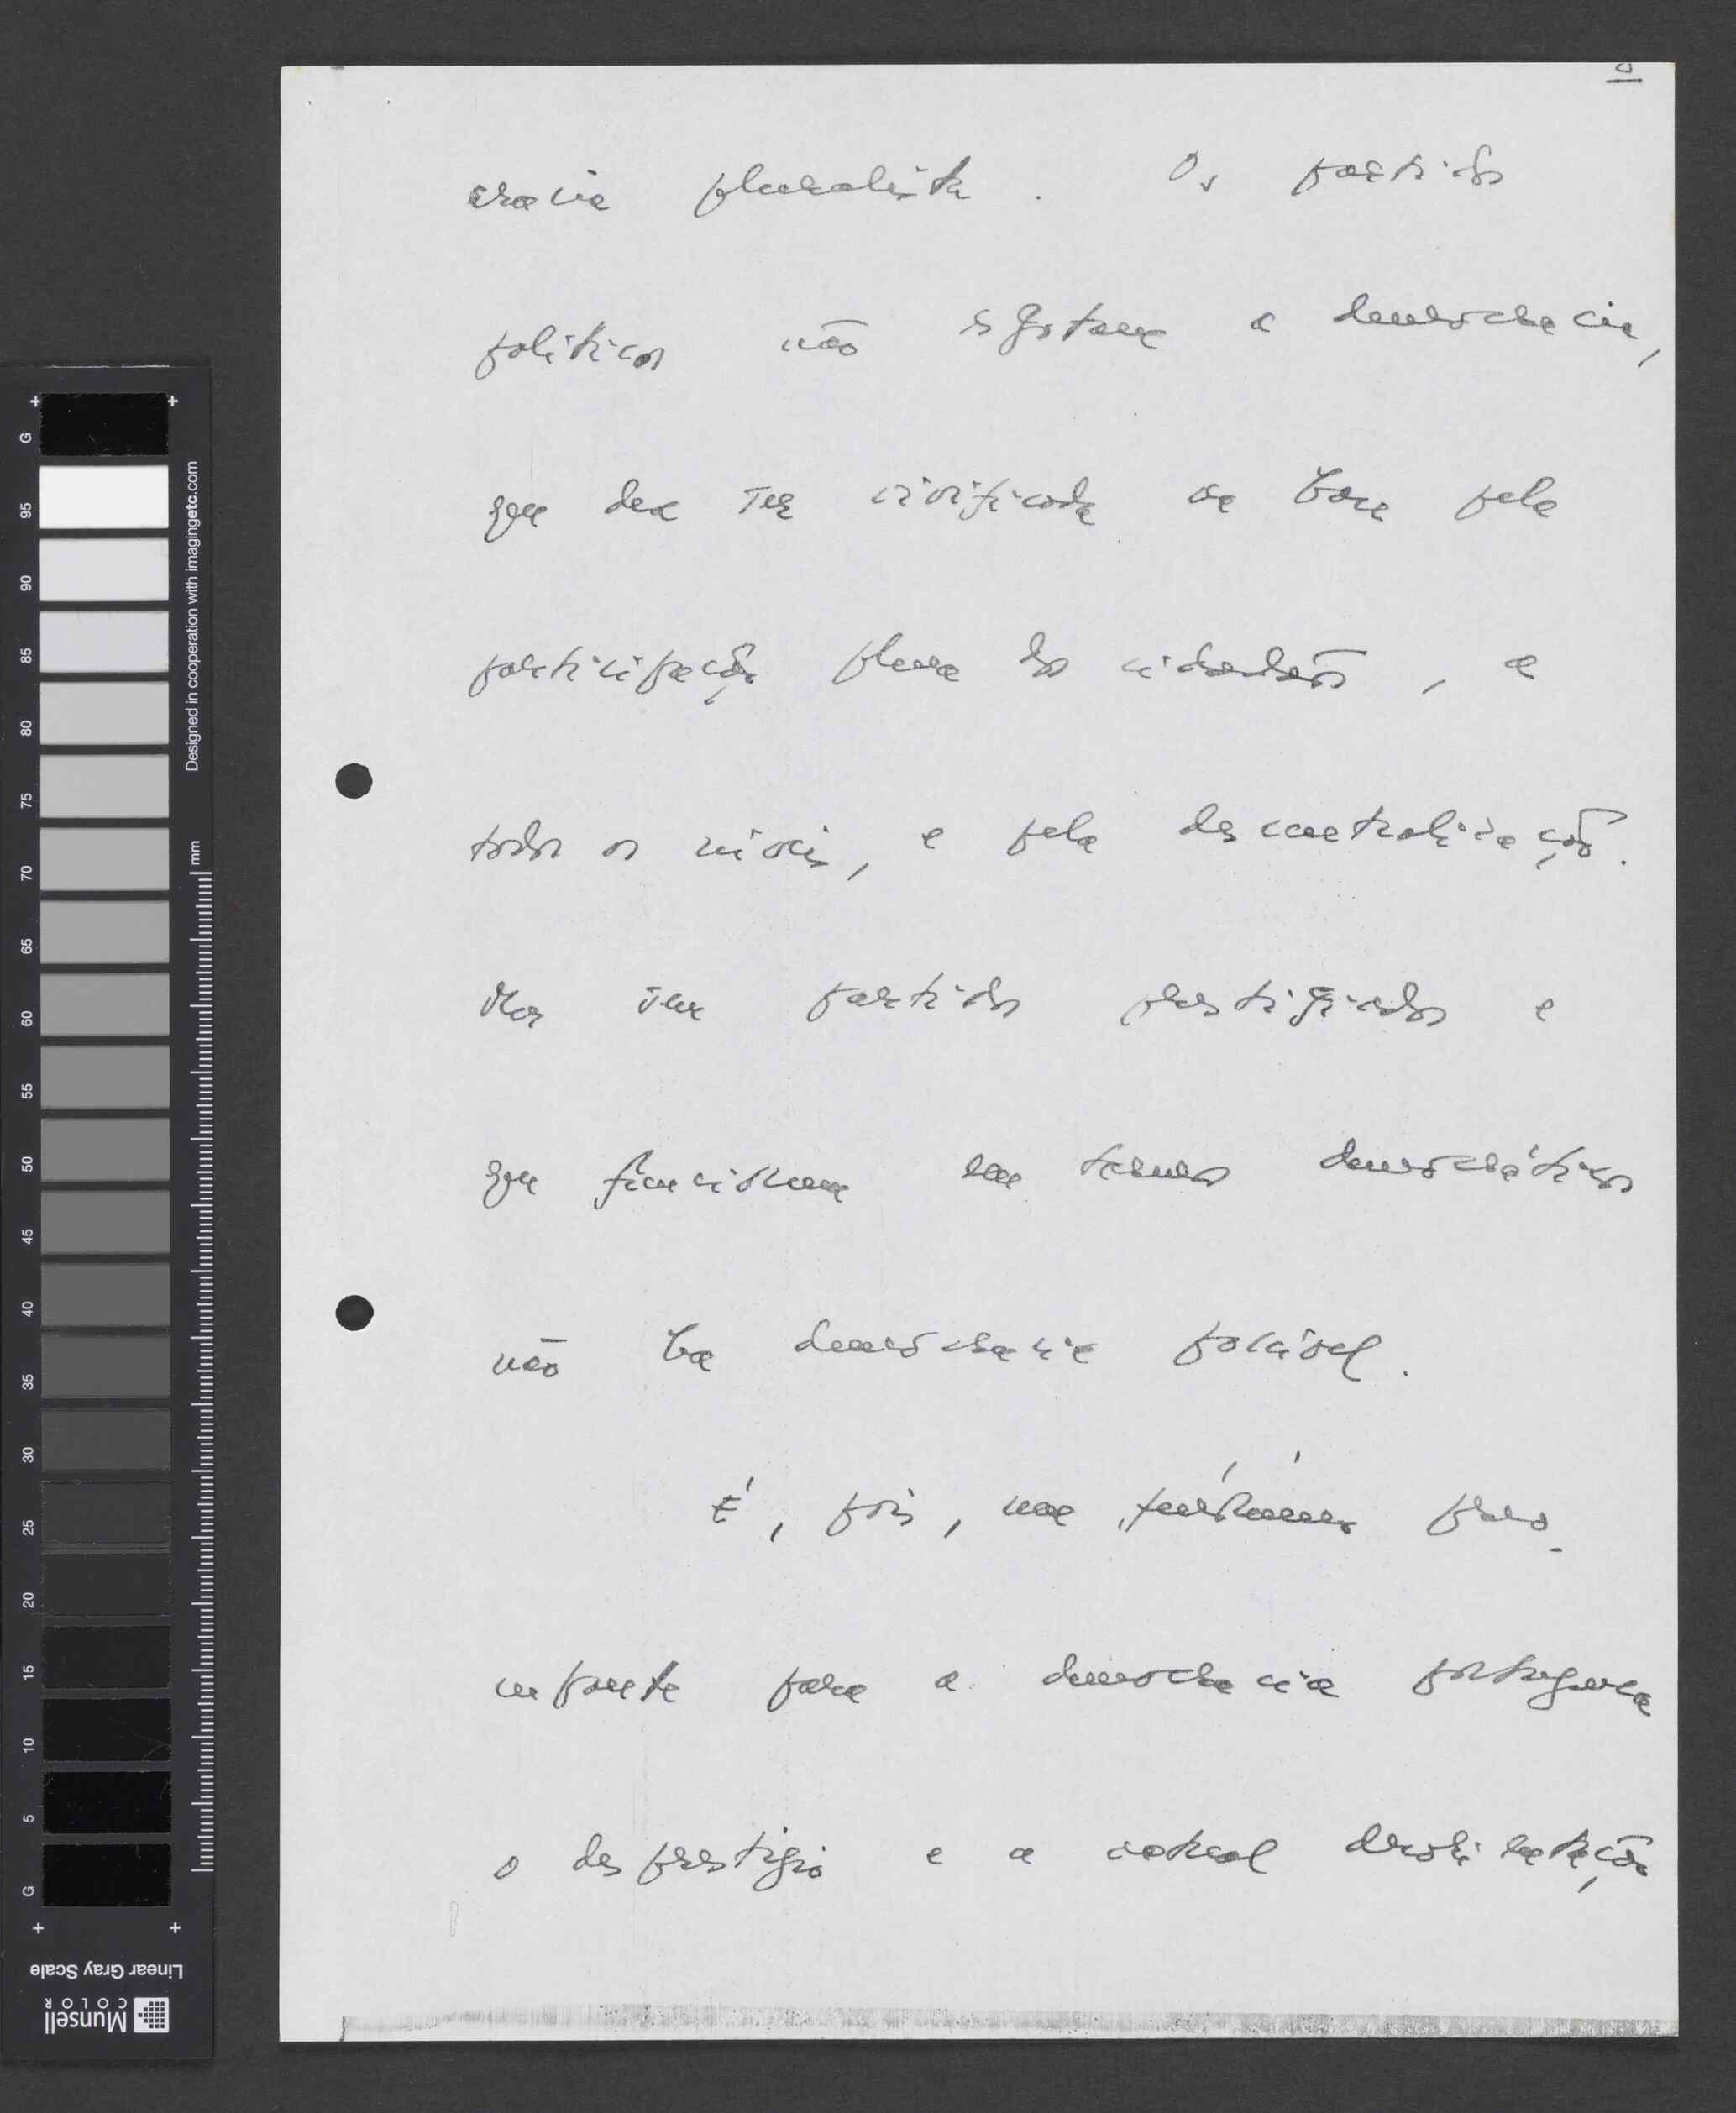 cracia pluralista. Os partidos
políticos não esgotam a democracia,
que deve ser vivificada na base pela
participação plena dos cidadãos, a
todos os níveis, e pela descentralização.
Mas sem partidos prestigiados e
que funcionem em termos democráticos
não há democracia possível.
É, pois, um fenómeno preo-
cupante para a democracia portuguesa
o desprestígio e a actual
G
95
90
85
80
75
70
65
60
55
50
45
40
35
30
25
20
15
10
5
G
mm
Designed in cooperation with imagingetc.com
Linear Gray Scale
Munsell
COLOR